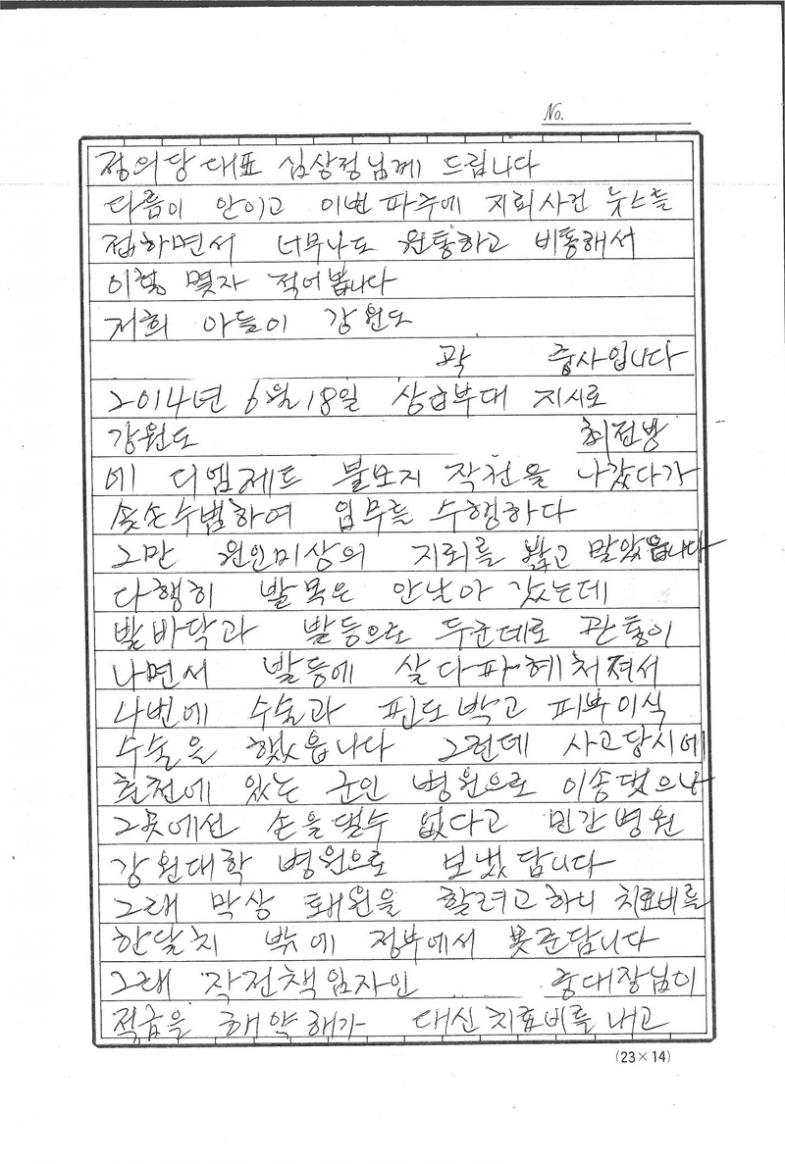 No.
정의당 대표 심상정님께 드립니다
다름이 안이고 이번 파주에 지뢰사건 뉴스를
접하면서 너무나도 원통하고 비통해서
이렇 몇자 적어봅니다
저희 아들이 강원도
곽 중사입니다
2014년 6월 18일 상급부대 지시로
강원도 최전방
에 디엠제트 불모지 작전을 나갔다가
솔손수범하여 임무를 수행하다
그만 원인미상의 지뢰를 밟고 말았읍니다
다행히 발목은 안날아 갔는데
발바닥과 발등으로 두군데로 관통이
나면서 발등에 살다파헤처져서
나번에 수술과 핀도박고 피부이식
수술을 했읍니다 그런데 사고당시에
춘천에 있는 군인 병원으로 이송됐으나
그곳에선 손을댈수 없다고 민간병원
강원대학 병원으로 보냈답니다
그래 막상 퇴원을 할려고하니 치료비를
한달치 밖에 정부에서 못준답니다
그래 작전책임자인 중대장님이
적금을 해약해가 대신치료비를 내고
(23×14)